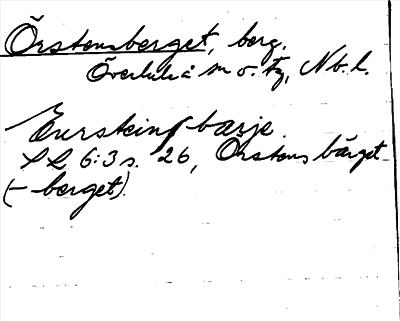 Örstensberget, berg.
Överluleå sn o. tg, Nb. l.
Eursteinsbærje.
S L 6:3 s. 26, Örstens bärget
(- berget).